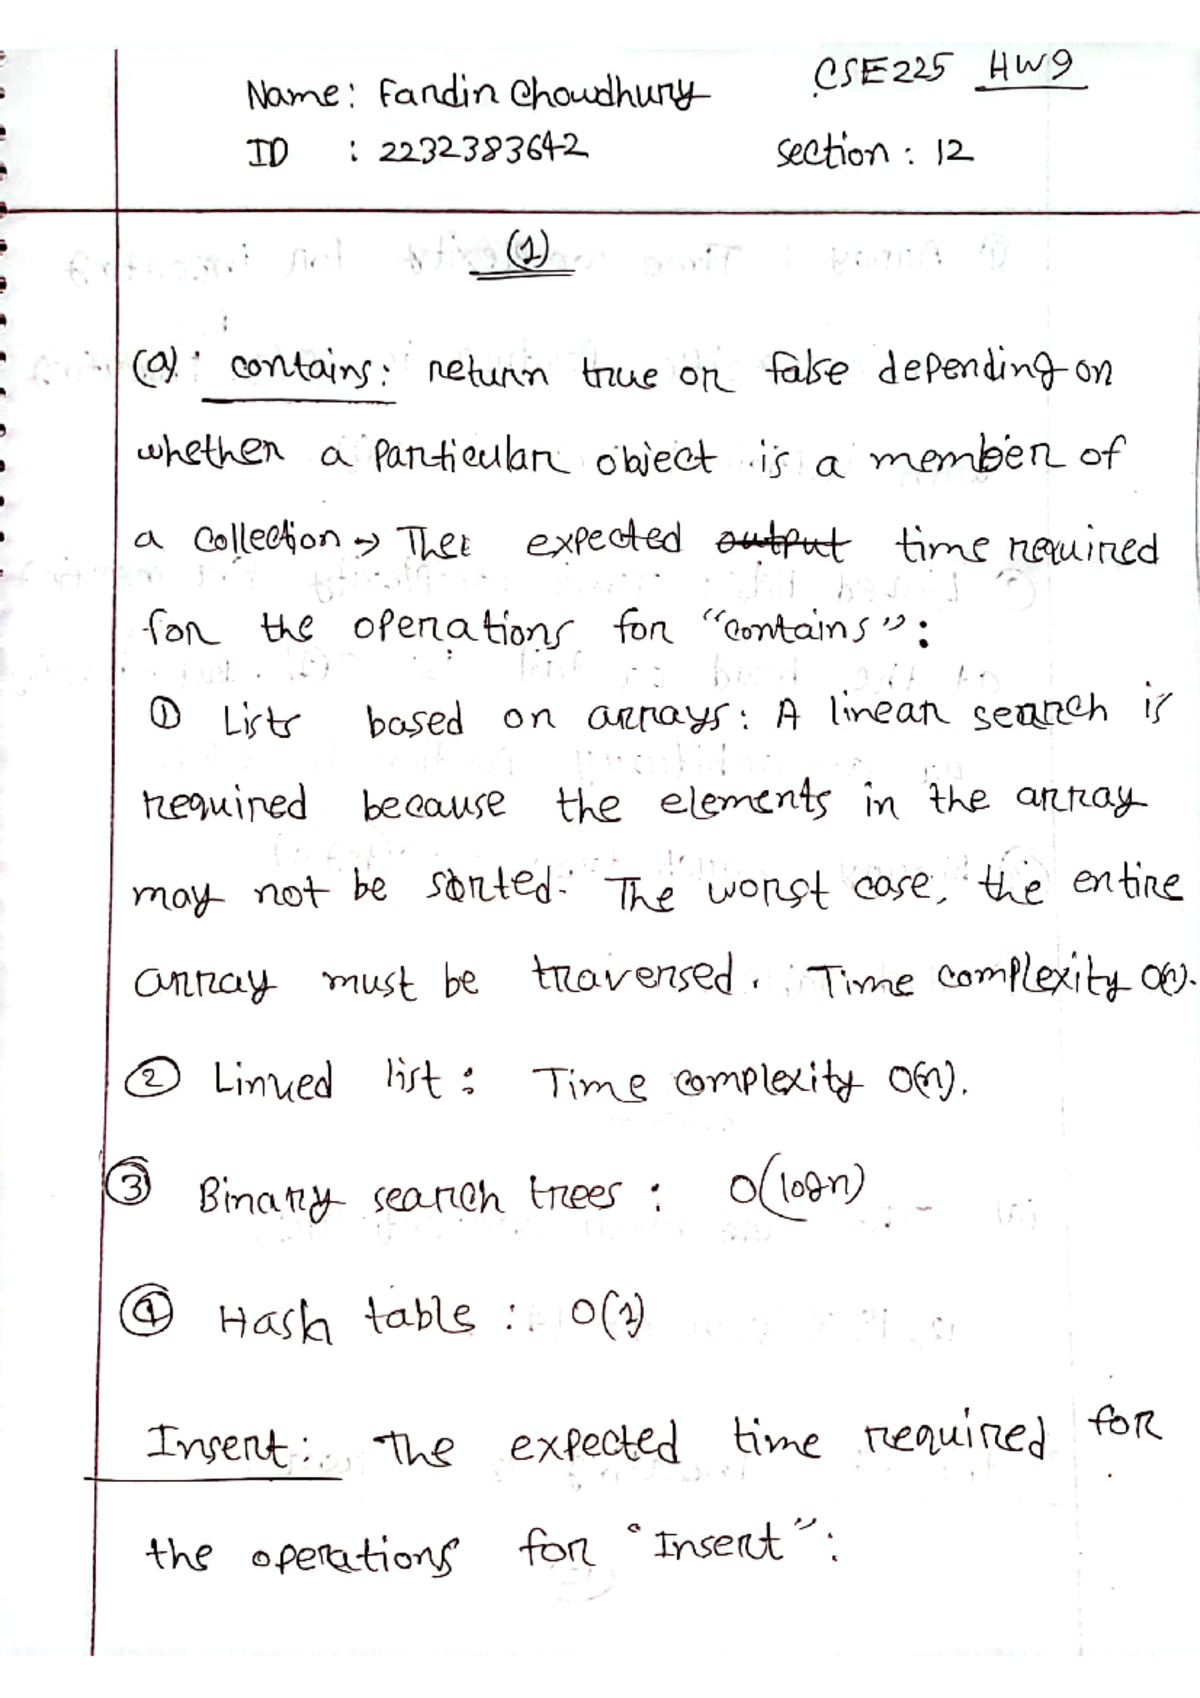 Name: Fardin Choudhury CSE225 HW9
ID : 2232383642 section : 12
(1)
(a): contains: return true or false depending on
whether a particular object is a member of
a collection → The expected output time required
for the operations for "contains":
① Lists based on arrays: A linear search is
required because the elements in the array
may not be sorted. The worst case, the entire
array must be traversed. Time complexity O(n).
② Linked list : Time complexity O(n).
③ Binary search trees : O(logn)
④ Hash table : O(1)
Insert: The expected time required for
the operations for "Insert":